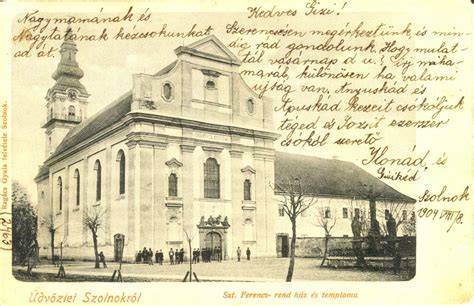 Nagymamának és
Nagytatának kézcsókunkat
át ad
Kedves Gizi!
Szerencsésen megérkeztünk, is min-
dig rád gondolunk. Hogy mulat-
tál vasárnap d. u.! Írj mika-
marább, különösen ha valami
ujság van. Anyuskád és
Apuskád kezeit csókoljuk
téged és Józsit ezerszer
csókol szerető
Ilonád, és
Gizikéd
Szolnok
1904 VII/
Regács Gyula felvétele Szolnok.
(763)
Üdvözlet Szolnokról
Szt. Ferencz-rend ház és temploma